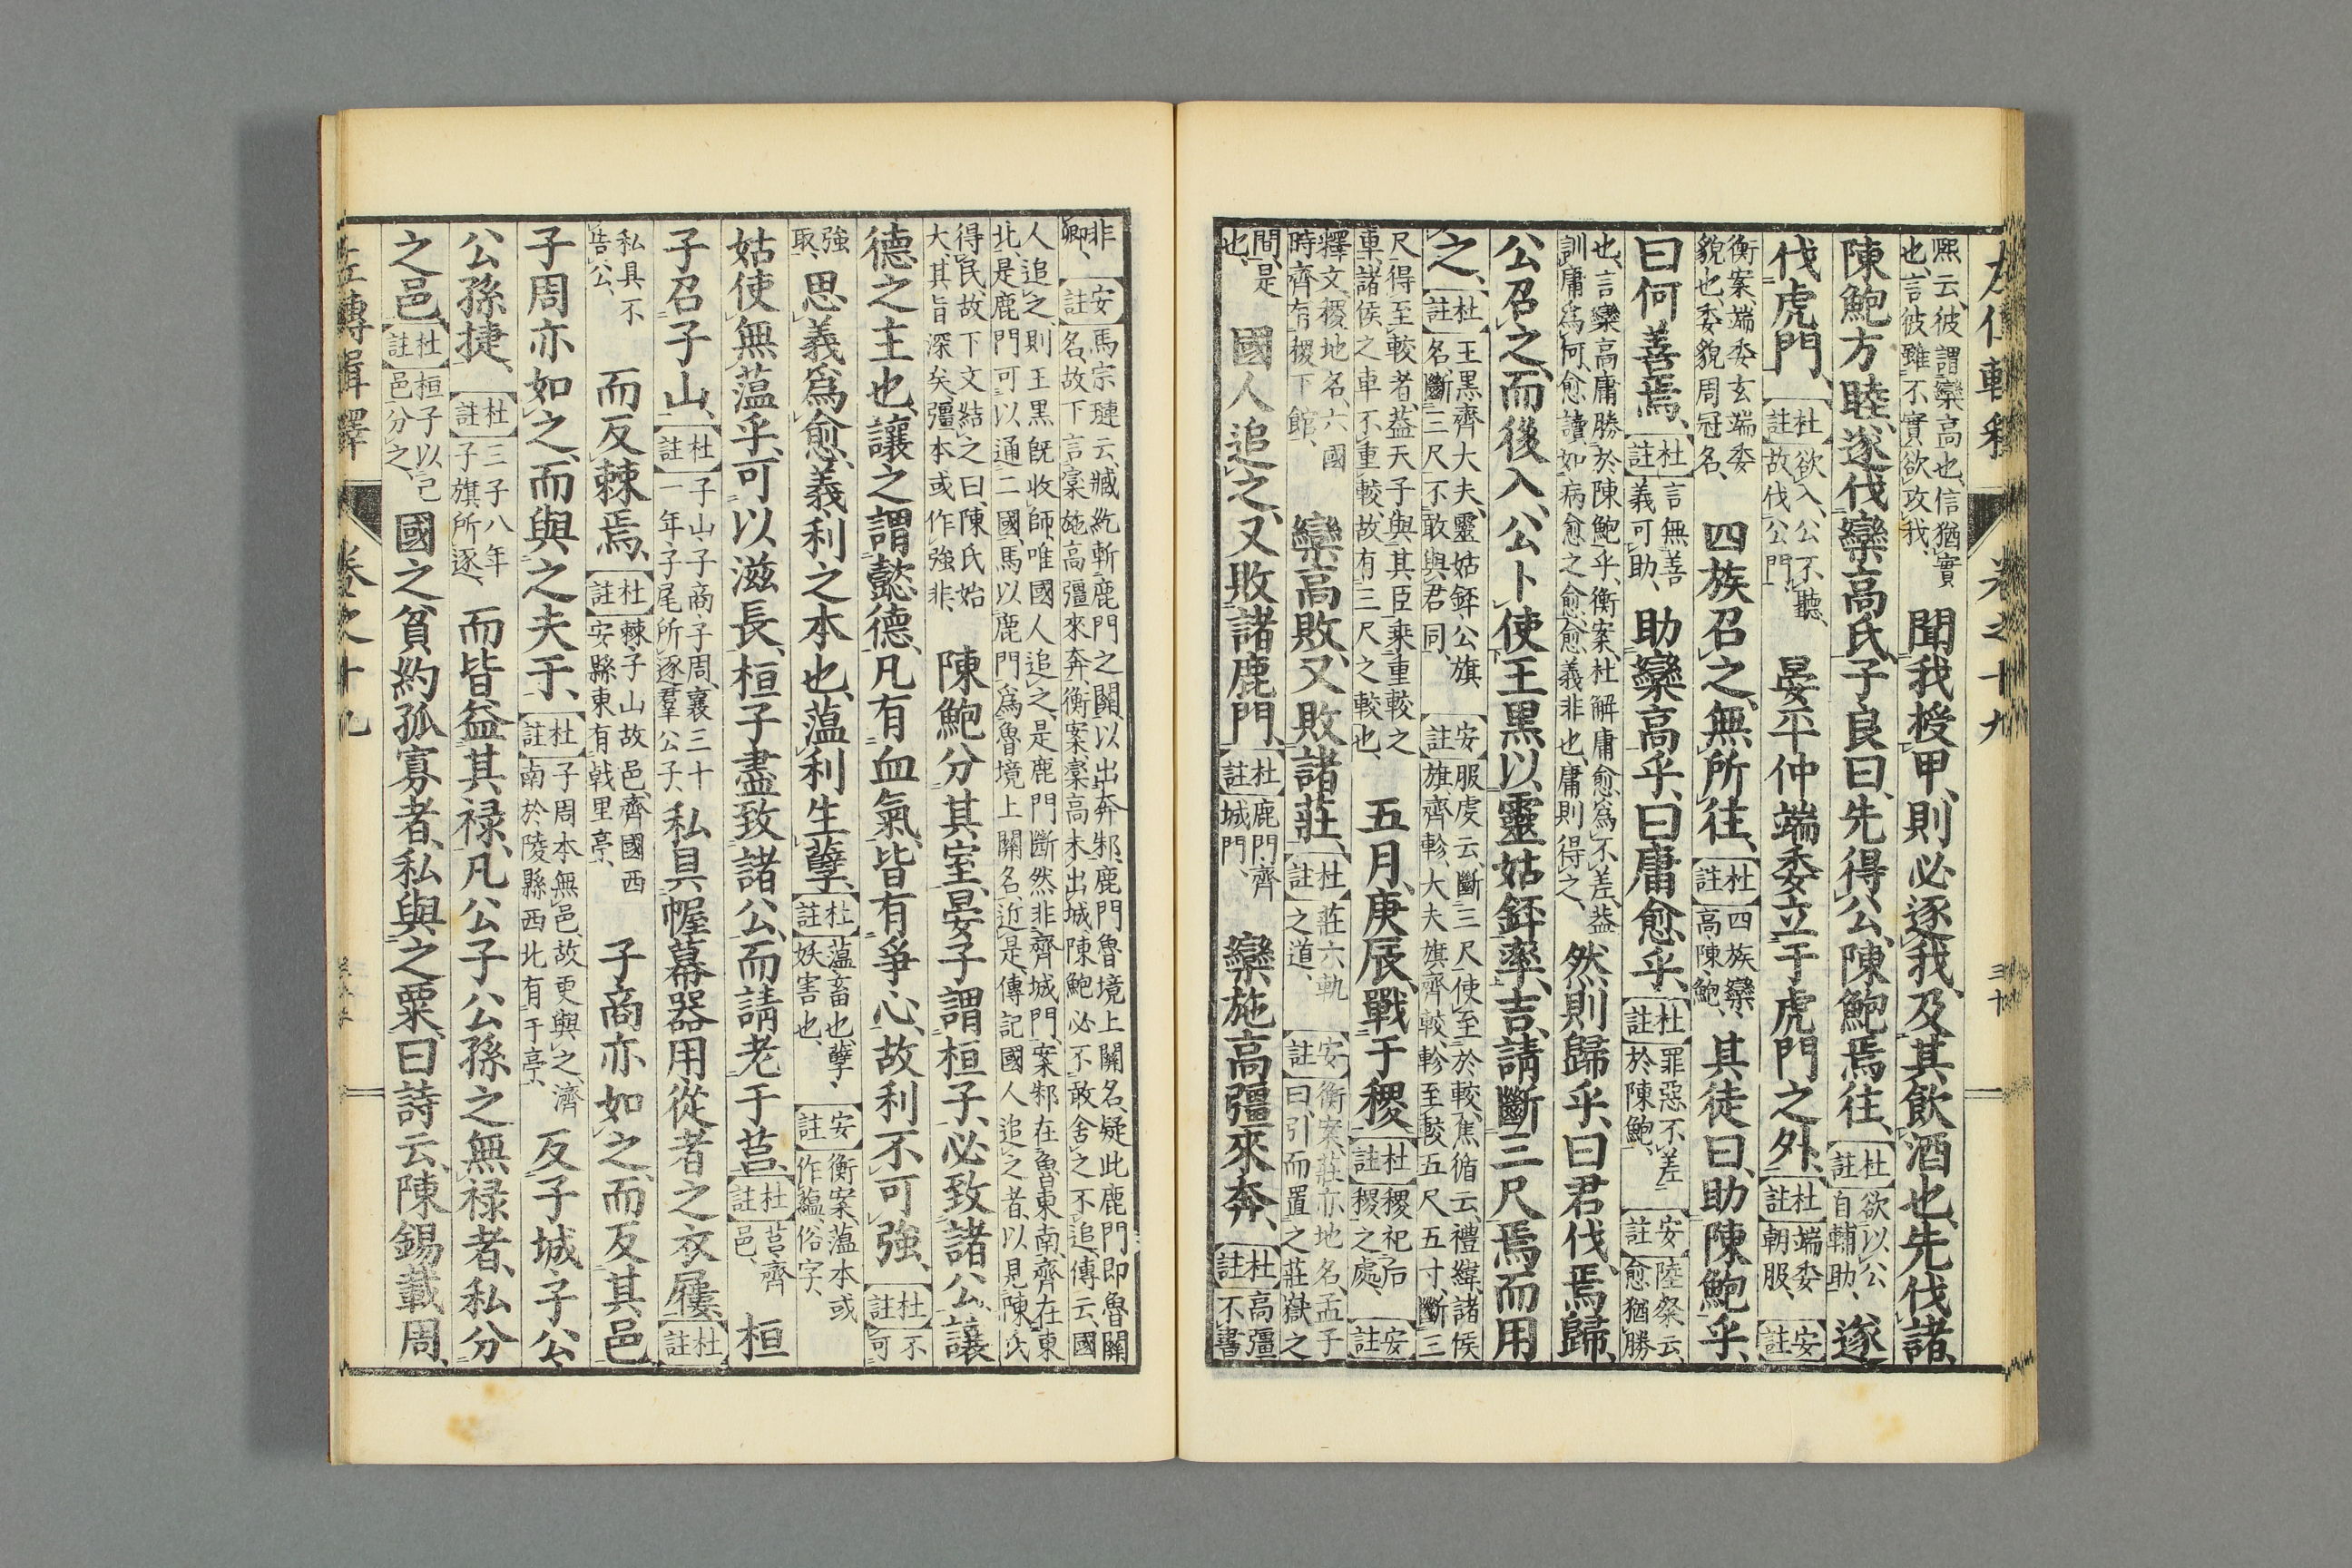 左傳輯釋 卷之十九
熙云、彼謂欒高也、信猶實也、言彼雖不實欲攻我、聞我授甲、則必逐我、及其飲酒也、先伐諸、
陳鮑方睦、遂伐欒高氏、子良曰、先得公、陳鮑焉往、杜註欲以公自輔助、遂
伐虎門、杜註欲入、公不聽、故伐公門、晏平仲端委立于虎門之外、杜註端委朝服、安註
衡案、端委玄端委貌也、委貌周冠名、四族召之、無所往、杜註四族欒高、陳鮑、其徒曰、助陳鮑乎、
曰何善焉、杜註言無善義可助、助欒高乎、曰庸愈乎、杜註罪惡不差於陳鮑、安註陸粲云、愈猶勝
也、言欒高庸勝於陳鮑乎、衡案、杜解庸愈爲不差、蓋訓庸爲何、愈讀如病愈之愈、愈義非也、庸則得之、然則歸乎、曰君伐、焉歸、
公召之、而後入、公卜使王黑以靈姑銔率、吉、請斷三尺焉而用
之、杜註王黑齊大夫、靈姑銔公旗名、斷三尺不敢與君同、安註服虔云、斷三尺使至於較、焦循云、禮緯、諸侯旗齊軫、大夫旗齊較、軫至較五尺五寸、斷三
尺得至較者、蓋天子與其臣乘重較之車、諸侯之車不重較、故有三尺之較也、五月、庚辰、戰于稷、杜註稷祀后稷之處、安註
釋文、稷地名、六國時齊有稷下館、欒高敗、又敗諸莊、杜註莊六軌之道、安註衡案、莊亦地名、孟子曰、引而置之莊嶽之
間、是也、國人追之、又敗諸鹿門、杜註鹿門、齊城門、欒施高彊來奔、杜註高彊不書
非卿、安註馬宗璉云、臧紇斬鹿門之關、以出奔邾、鹿門魯境上關名、疑此鹿門即魯關名、故下言欒施高彊來奔、衡案、欒高未出城、陳鮑必不敢舍之不追、傳云、國
人追之、則王黑既收師、唯國人追之、是鹿門斷然非齊城門、案邾在魯東南、齊在東北、是鹿門可以通二國、馬以鹿門爲魯境上關名、近是、傳記國人追之者、以見陳氏
得民、故下文結之曰、陳氏始大、其旨深矣、彊本或作強非、陳鮑分其室、晏子謂桓子、必致諸公、讓
德之主也、讓之謂懿德、凡有血氣、皆有爭心、故利不可強、杜註不可
強取、思義爲愈、義利之本也、薀利生孽、杜註薀畜也、孽、妖害也、安註衡案、薀本或作蘊、俗字、
姑使無薀乎、可以滋長、桓子盡致諸公、而請老于莒、杜註莒、齊邑、桓
子召子山、杜註子山子商子周、襄三十一年子尾所逐羣公子、私具幄幕器用從者之衣屨、杜註
私具不告公、而反棘焉、杜註棘、子山故邑、齊國西安縣東有戟里亭、子商亦如之、而反其邑
子周亦如之、而與之夫于、杜註子周本無邑、故更與之濟南於陵縣西北有于亭、反子城、子公、
公孫捷、杜註三子八年子旗所逐、而皆益其禄、凡公子公孫之無禄者、私分
之邑、杜註桓子以己邑分之、國之貧約孤寡者、私與之粟、曰詩云、陳錫載周、
左傳輯釋 卷之十九